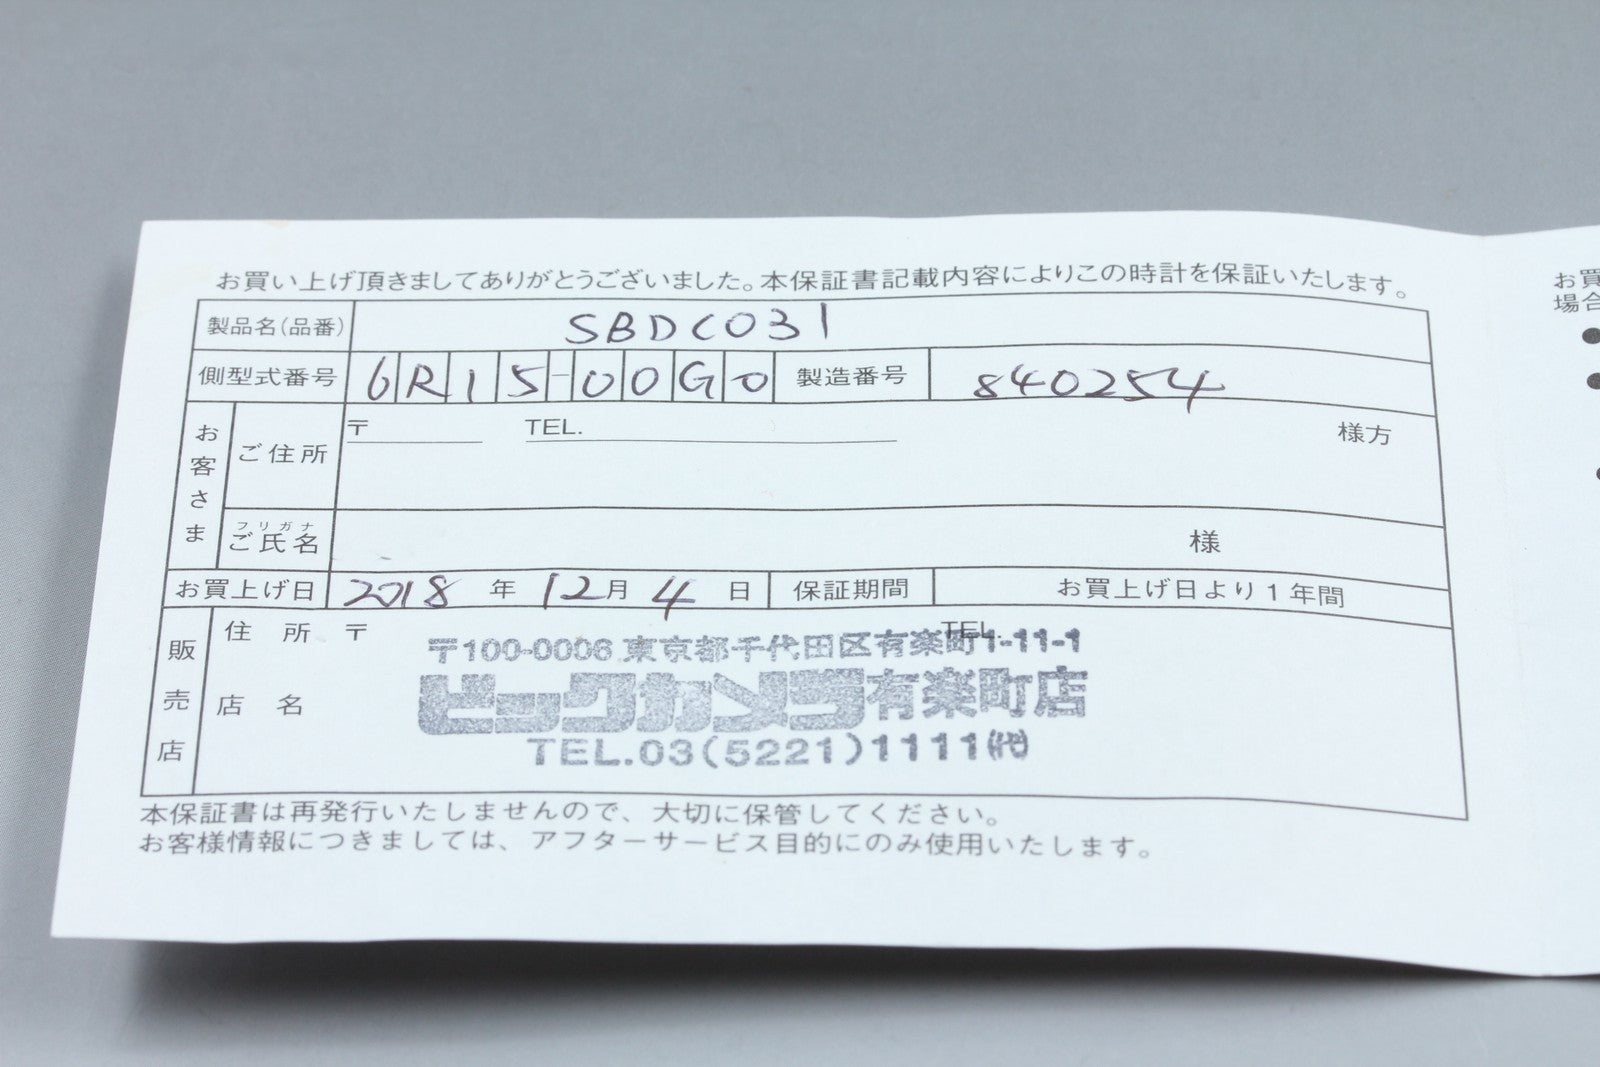 お買い上げ頂きましてありがとうございました。本保証書記載内容によりこの時計を保証いたします。
製品名(品番) SBDC031
側型式番号 6R15-00G0 製造番号 840254
お客さま
ご住所 〒 TEL. 様方
フリガナ
ご氏名 様
お買上げ日 2018 年 12 月 4 日 保証期間 お買上げ日より1年間
販売店
住 所 〒 TEL.
〒100-0006 東京都千代田区有楽町1-11-1
店 名 ビックカメラ有楽町店
TEL.03(5221)1111㈹
本保証書は再発行いたしませんので、大切に保管してください。
お客様情報につきましては、アフターサービス目的にのみ使用いたします。
お買
場合